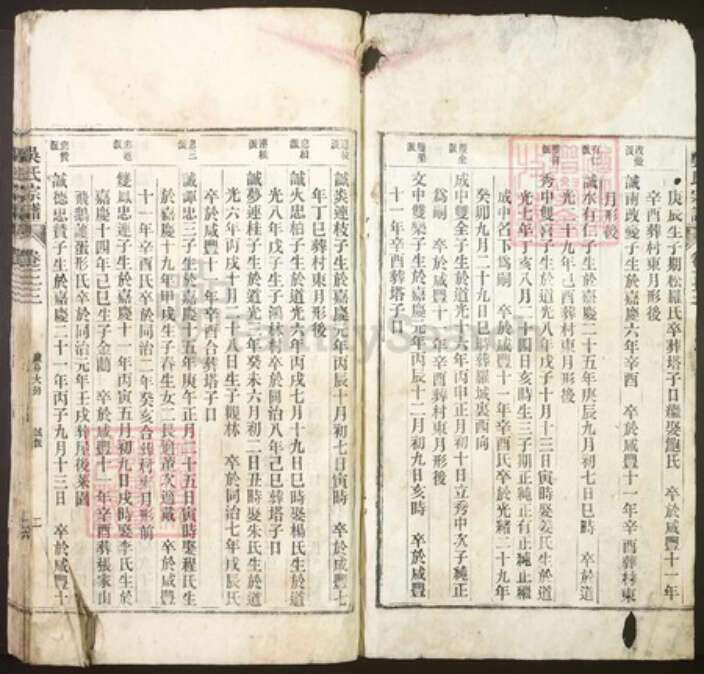 庚辰生子期松羅氏卒葬塔子口繼娶鮑氏　卒於咸豐十一年
辛酉葬村東月形後
誠南改變子生於嘉慶六年辛酉　卒於咸豐十一年辛酉葬村東
月形後
誠水有仁子生於嘉慶二十五年庚辰九月初七日巳時　卒於道
光十九年己酉葬村東月形後
秀中雙喜子生於道光八年戊子十月十三日寅時娶姜氏生於道
光七年丁亥八月十四日亥時生三子期正純正有正純正繼
成中名下為嗣　卒於咸豐十一年辛酉氏卒於光緒二十九年
癸卯九月二十九日巳時葬羅城裏西向
成中雙全子生於道光十六年丙申正月初十日立秀中次子純正
為嗣　卒於咸豐十一年辛酉葬村東月形後
文中雙榮子生於嘉慶元年丙辰十二月初九日亥時　卒於咸豐
十一年辛酉葬塔子口
誠炎連枝子生於嘉慶元年丙辰十月初七日寅時　卒於咸豐七
年丁巳葬村東月形後
誠火忠柏子生於道光六年丙戌七月十九日巳時娶楊氏生於道
光八年戊子生子鴻林村　卒於同治八年己巳葬塔子口
誠夢連桂子生於道光年癸未六月初二日丑時娶朱氏生於道
光六年丙戌十月十八日生子觀林　卒於同治七年戊辰氏
卒於咸豐十一年辛酉合葬塔子口
誠譚忠三子生於嘉慶十五年庚午正月二十五日寅時娶程氏生
於嘉慶十九年甲戌生子春生女二長適董次適戴　卒於咸豐
十一年辛酉氏卒於同治二年癸亥合葬村東月形前
雙鳳忠連子生於嘉慶十一年丙寅五月初九日戌時娶李氏生於
嘉慶十四年己巳生子金勸　卒於咸豐十一年辛酉葬張家山
飛鵝護蛋形氏卒於同治元年壬戌葬屋後菜園
誠德忠贊子生於嘉慶二十一年丙子九月十三日　卒於咸豐十
吳氏宗譜